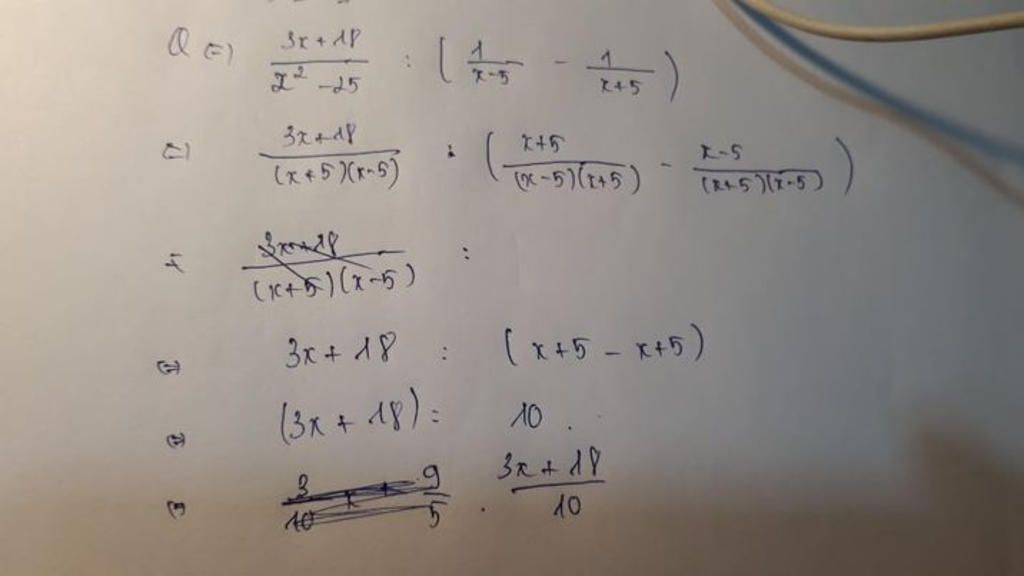 Q (=) \frac{3x+18}{x^2-25} : ( \frac{1}{x-5} - \frac{1}{x+5} )
(=) \frac{3x+18}{(x+5)(x-5)} : ( \frac{x+5}{(x-5)(x+5)} - \frac{x-5}{(x+5)(x-5)} )
\frac{3x+18}{(x+5)(x-5)} :
(=) 3x+18 : (x+5-x+5)
(=) (3x+18) : 10.
(=) \frac{3}{10}x + \frac{9}{5} . \frac{3x+18}{10}